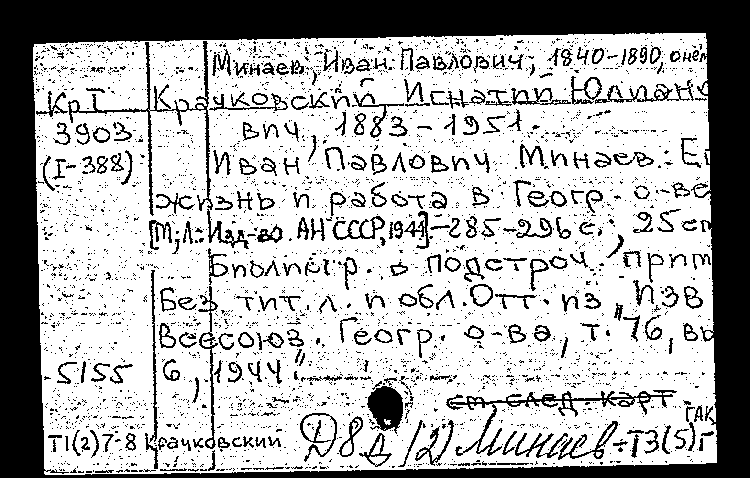 Минаев, Иван Павлович, 1840-1890, о нём
КрI Крачковский, Игнатий Юлиано
3903 вич, 1883-1951.
(I-388) Иван Павлович Минаев: Ег
жизнь и работа в Геогр. о-ве
[М; Л.: Изд-во АН СССР, 1944]-285-296 с.; 25 см
Библиогр. в подстроч. прим
Без тит. л. и обл. Отт. из "Изв
Всесоюз. Геогр. о-ва, т. 76, вы
5155 6, 1944".
см. след. карт
ГАК
Т1(2)7-8 Крачковский Д8д (2) Минаев-Т3(5)Г